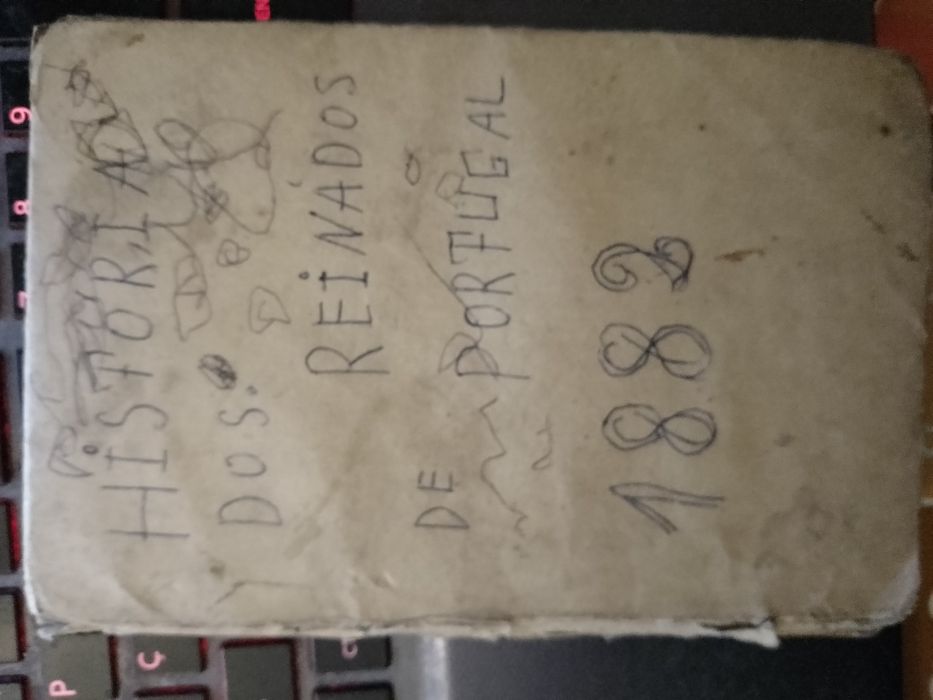 HISTORIA
DOS.
REINADOS
DE
PORTUGAL
1882
9
8
7
P
Ç